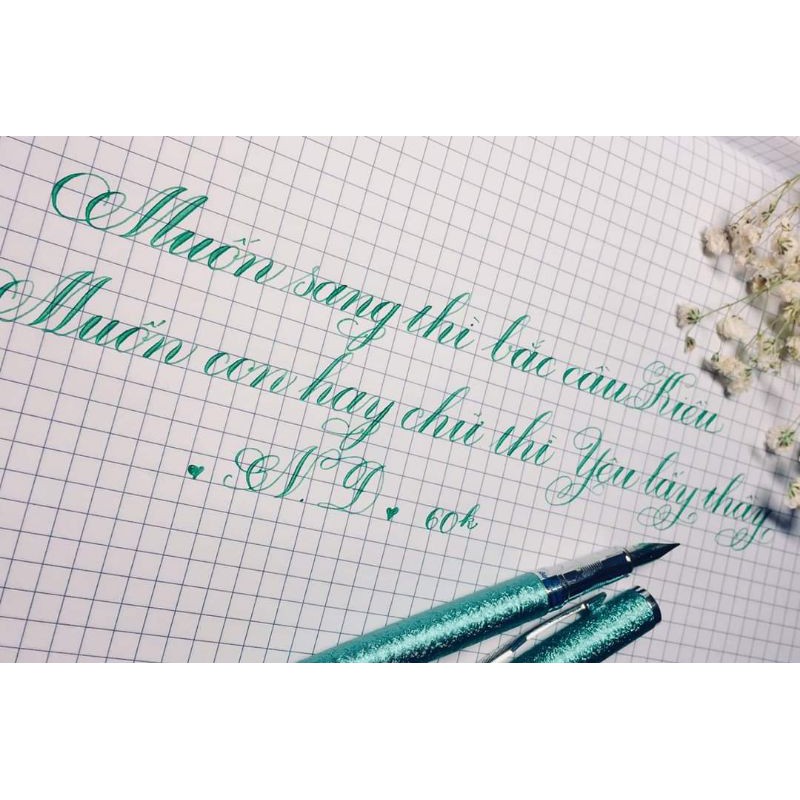 Muốn sang thì bắc cầu Kiều
Muốn con hay chữ thì Yêu lấy thầy
N.D. 60k